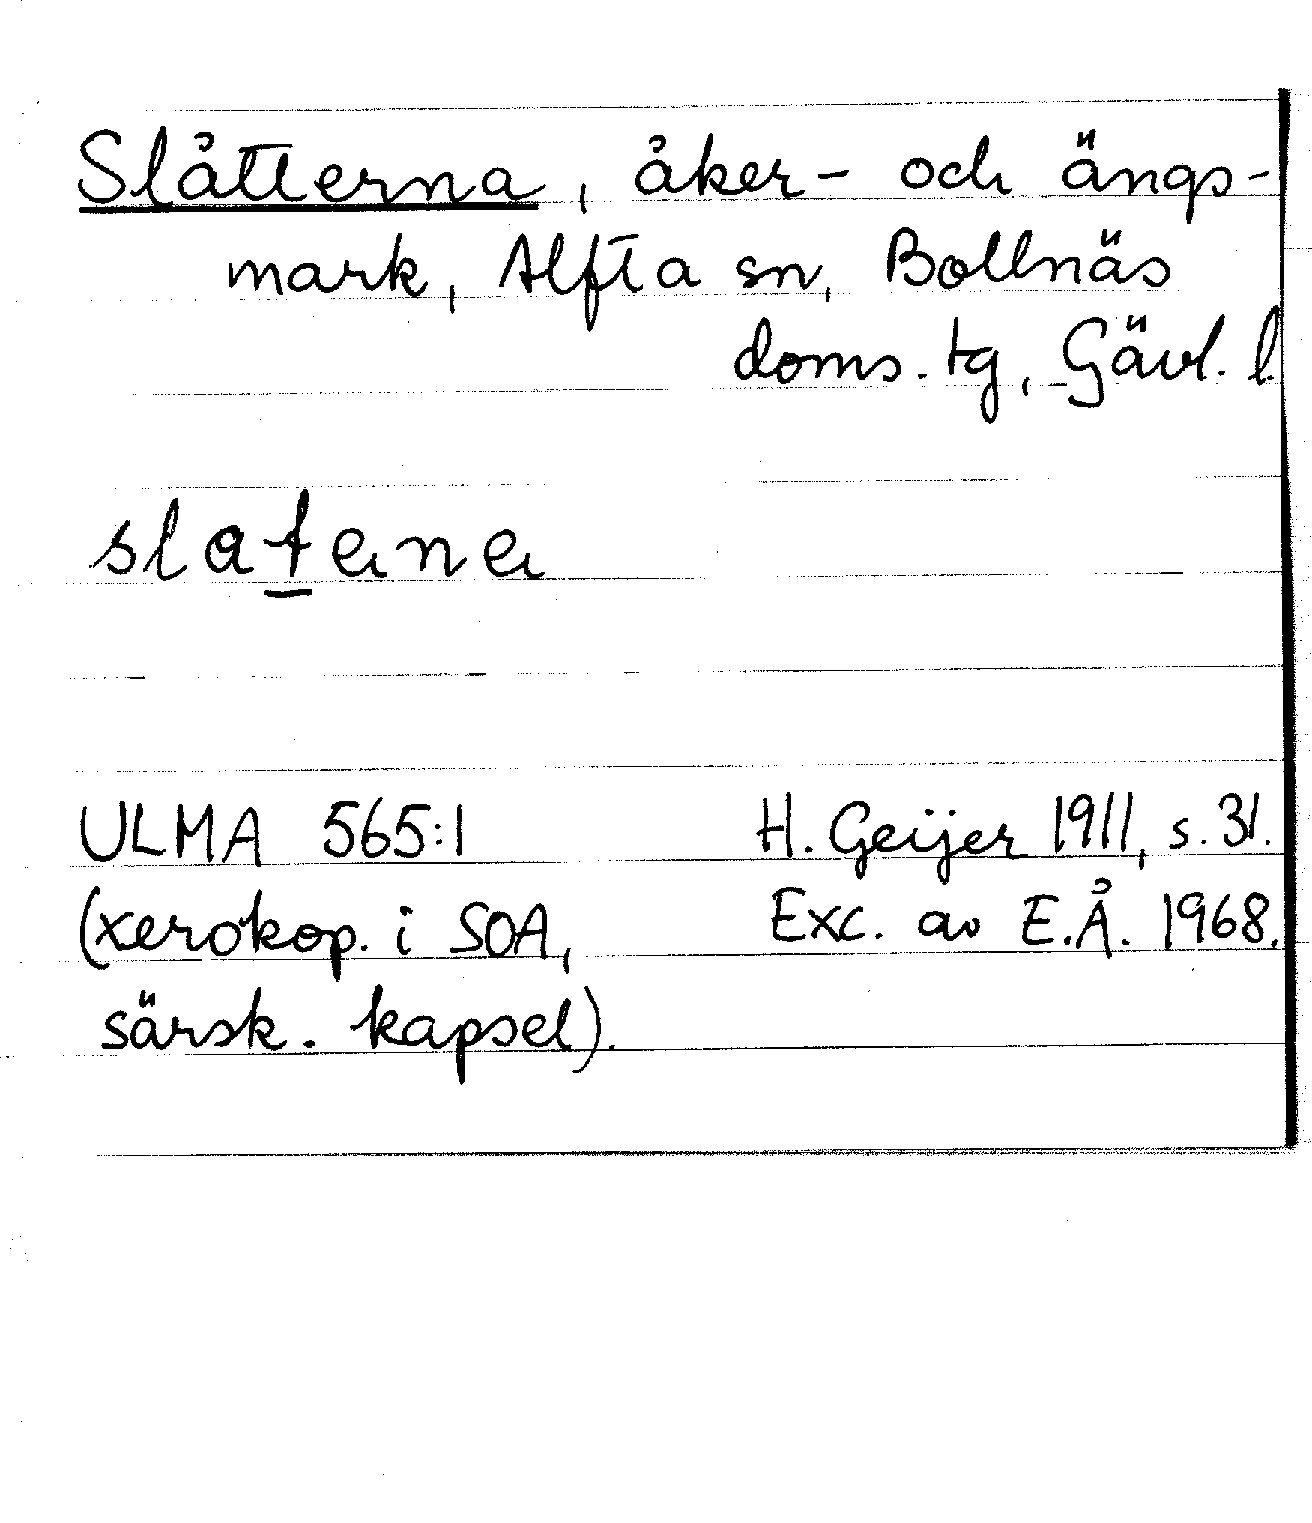 Slåtterna, åker- och ängs-
mark, Alfta sn, Bollnäs
doms. tg, Gävl. l.
ULMA 565:1 H. Geijer 1911, s. 31.
(xerokop. i SOA, Exc. av E.Å. 1968.
särsk. kapsel).